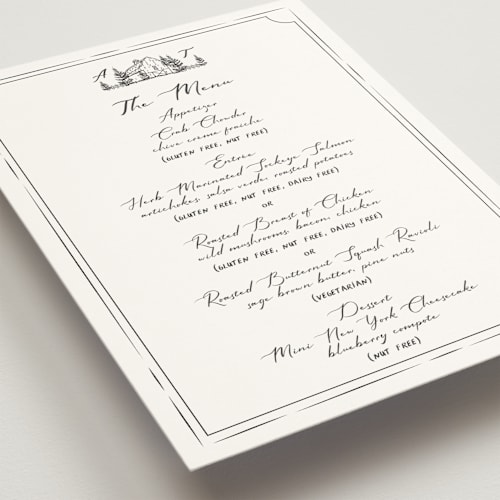 A T
The Menu
Appetizer
Crab Chowder
chive creme fraiche
(GLUTEN FREE, NUT FREE)
Entrée
Herb Marinated Sockeye Salmon
artichokes, salsa verde, roasted potatoes
(GLUTEN FREE, NUT FREE, DAIRY FREE)
OR
Roasted Breast of Chicken
wild mushrooms, bacon, chicken
(GLUTEN FREE, NUT FREE, DAIRY FREE)
OR
Roasted Butternut Squash Ravioli
sage brown butter, pine nuts
(VEGETARIAN)
Dessert
Mini New York Cheesecake
blueberry compote
(NUT FREE)